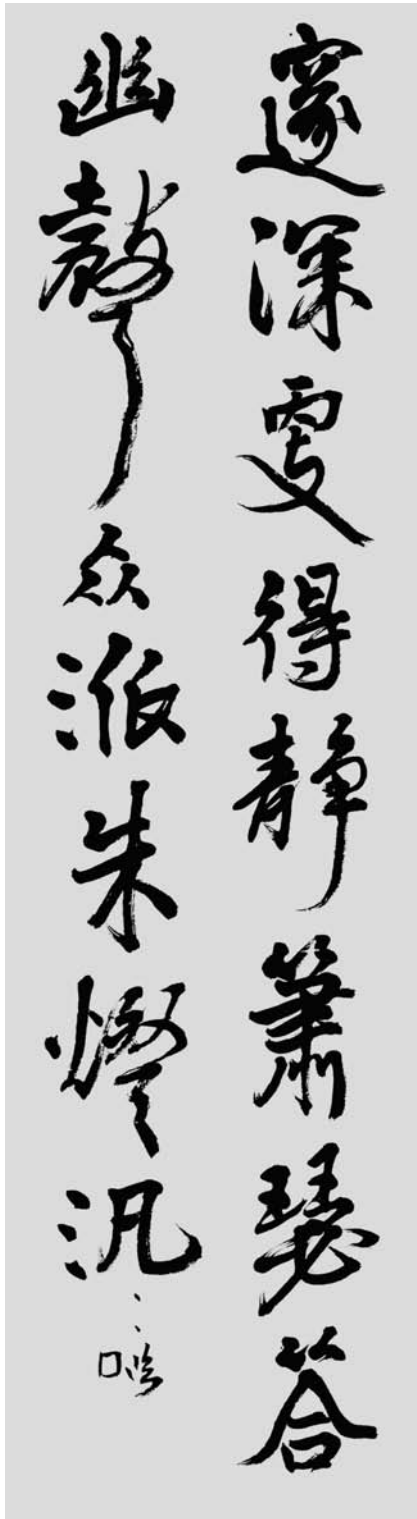 邃深更得静箫瑟答
幽聲众派朱燈汎